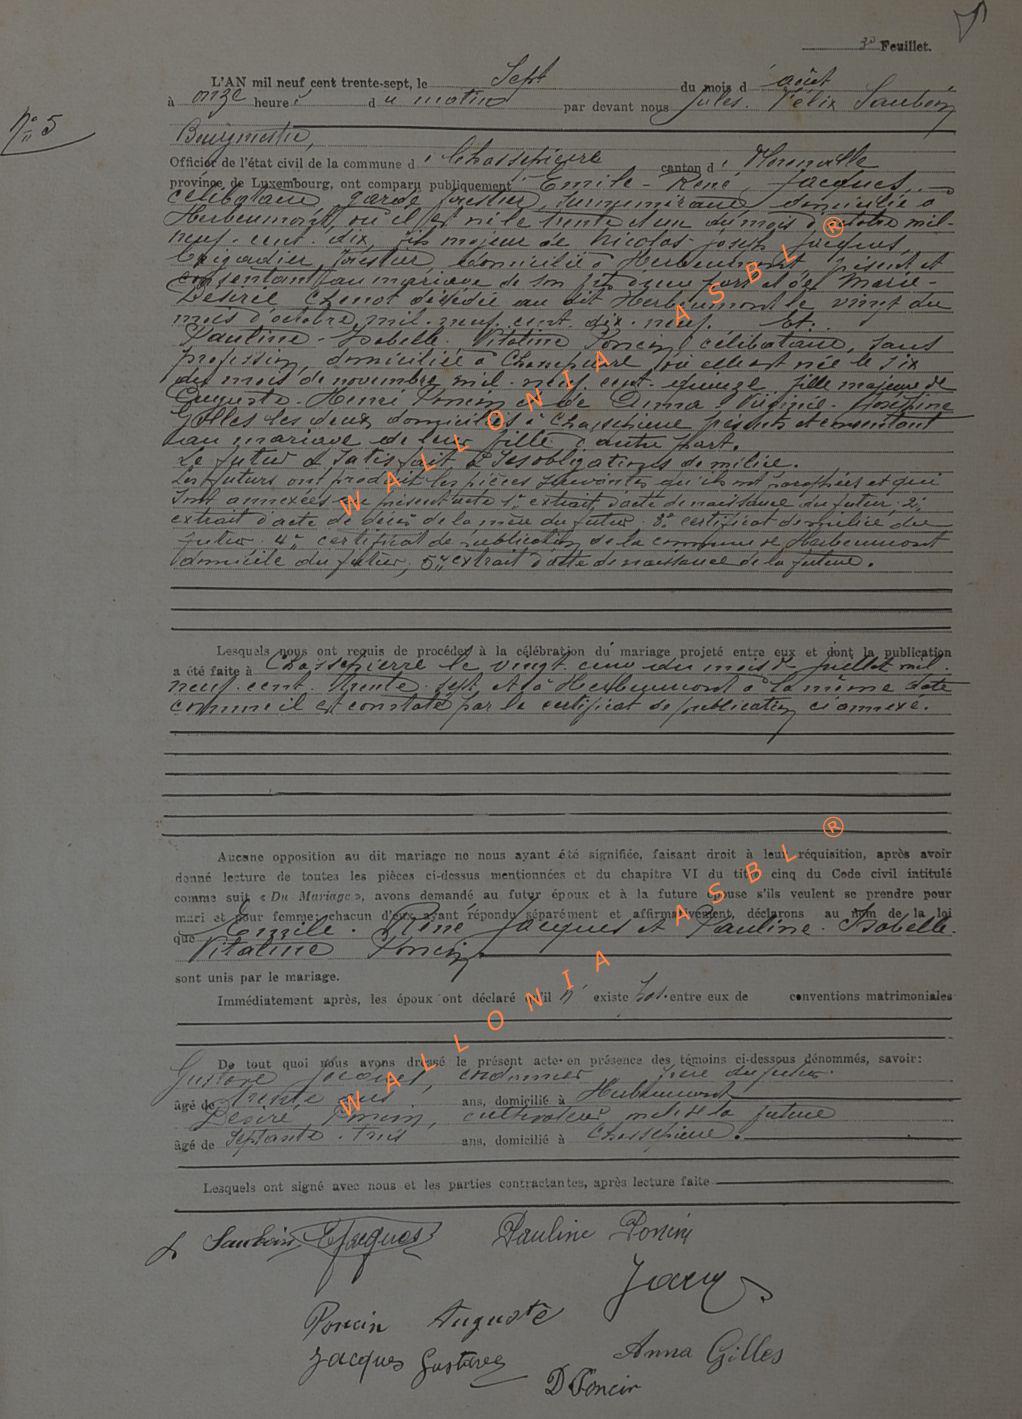 3e Feuillet.
L'AN mil neuf cent trente-sept, le Sept du mois d'août
à onze heures du matin par devant nous Jules. Félix Saubain
N° 5
Bourgmestre,
Officier de l'état civil de la commune de Chassepierre canton de
province de Luxembourg, ont comparu publiquement Emile-René, Jacques,
célibataire garde forestier, domicilié à
Herbeumont, où il est né le trente et un du mois d'octobre mil-
neuf-cent-dix, fils majeur de Nicolas-Joseph Jacques,
brigadier forestier, domicilié à Herbeumont présent et
consentant au mariage de son fils d'une part et de Marie-
Désirée Chenot décédée au dit Herbeumont le vingt du
mois d'octobre mil-neuf-cent-dix-neuf. Et.
Pauline-Isabelle-Vitaline Poncin, célibataire, sans
profession, domiciliée à Chassepierre où elle est née le six
du mois de novembre mil-neuf-cent-quinze, fille majeure de
Auguste-Henri Poncin et de Anna-Virginie-Joséphine
Gilles les deux domiciliés à Chassepierre présents et consentant
au mariage de leur fille d'autre part.
Le futur a satisfait à ses obligations de milice.
Les futurs ont produit les pièces suivantes qu'ils ont paraphées et qui
sont annexées au présent acte 1° extrait d'acte de naissance du futur. 2°
extrait d'acte de décès de la mère du futur. 3° certificat de milice du
futur. 4° certificat de publication de la commune de Herbeumont
domicile du futur, 5° extrait d'acte de naissance de la future.
Lesquels nous ont requis de procéder à la célébration du mariage projeté entre eux et dont la publication
a été faite à Chassepierre le vingt cinq du mois de juillet mil-
neuf-cent-trente-sept et à Herbeumont à la même date
comme il est constaté par le certificat de publication ci annexé.
Aucune opposition au dit mariage ne nous ayant été signifiée, faisant droit à leur réquisition, après avoir
donné lecture de toutes les pièces ci-dessus mentionnées et du chapitre VI du titre cinq du Code civil intitulé
comme suit « Du Mariage », avons demandé au futur époux et à la future épouse s'ils veulent se prendre pour
mari et pour femme; chacun d'eux ayant répondu séparément et affirmativement, déclarons au nom de la loi
que Emile. René Jacques et Pauline. Isabelle.
Vitaline Poncin
sont unis par le mariage.
Immédiatement après, les époux ont déclaré qu'il n'existe pas entre eux de conventions matrimoniales
De tout quoi nous avons dressé le présent acte en présence des témoins ci-dessous dénommés, savoir:
Gustave Jacques, cordonnier frère du futur.
âgé de trente ans, domicilié à Herbeumont
Désiré Poncin, cultivateur de la future
âgé de septante-trois ans, domicilié à Chassepierre.
Lesquels ont signé avec nous et les parties contractantes, après lecture faite
J. Saubain E Jacques Pauline Poncin
Jacques
Poncin Auguste
Jacques Gustave Anna Gilles
D Poncin
WALLONIA ASBL ®
WALLONIA ASBL ®